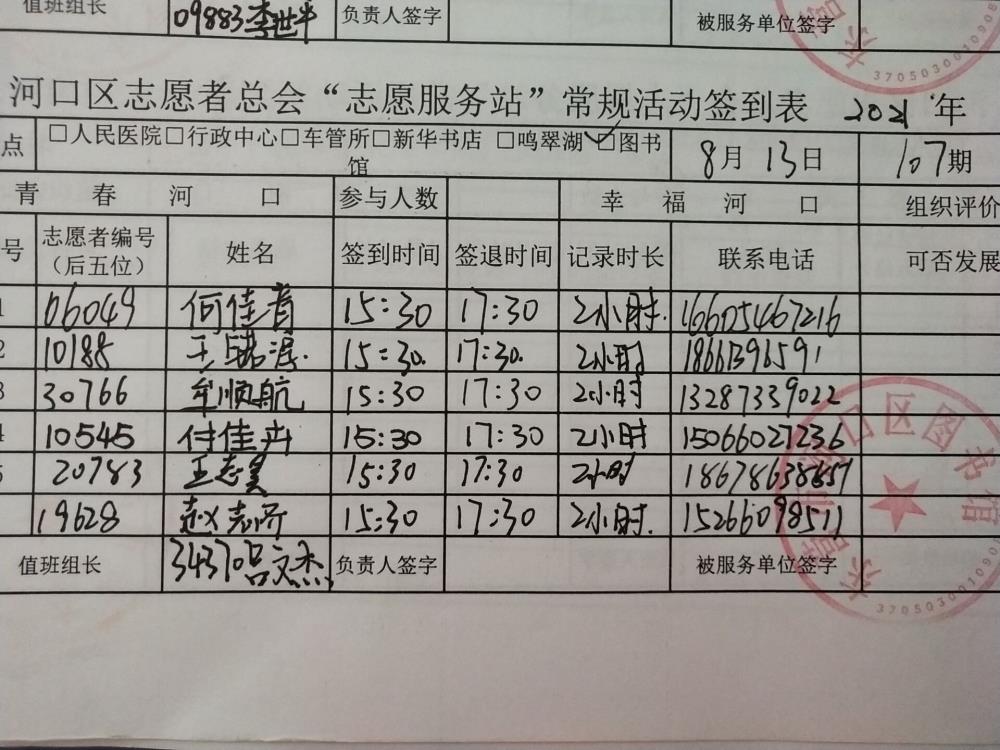 值班组长 09883李世平 负责人签字 被服务单位签字
3705030010908
河口区志愿者总会“志愿服务站”常规活动签到表 2021年
点 □人民医院□行政中心□车管所□新华书店 □鸣翠湖☑图书馆 8月13日 107期
青春河口 参与人数 幸福河口 组织评价
号 志愿者编号（后五位） 姓名 签到时间 签退时间 记录时长 联系电话 可否发展
1 06049 何佳青 15:30 17:30 2小时. 16605467216
2 10188 王 15:30. 17:30. 2小时 18661396591
3 30766 牟顺航 15:30 17:30 2小时 13287339022
4 10545 付佳卉 15:30 17:30 2小时 15066027236
5 20783 王志昊 15:30 17:30 2小时 18678638657
19628 赵志济 15:30 17:30 2小时. 15266098511
值班组长 34370吕文杰 负责人签字 被服务单位签字
东营市河口区图书馆
3705030010908